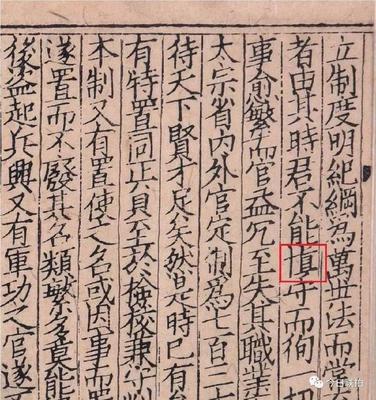 立制度明紀綱為萬世法而常
者由其時君不能慎守而徇一切
事愈繁而官益冗至失其職業
太宗省内外官定制爲七百三
待天下賢才足矣然是時已有
有特置同正員至於檢校兼守
本制又有置使之名或因事而置
遂置而不廢其名類繁多莫能
後盗起兵興又有軍功之官遂不